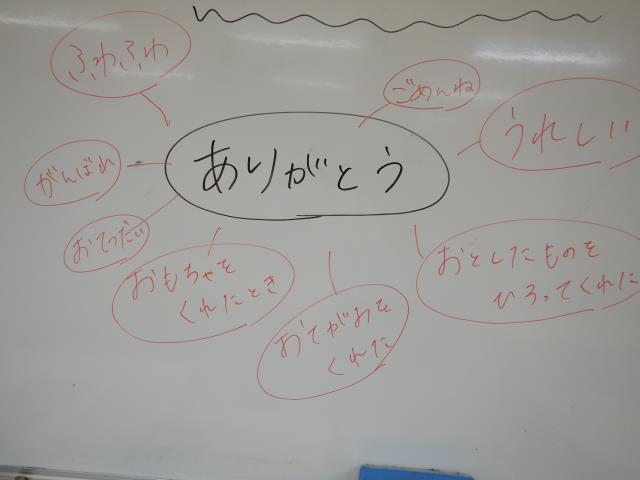 ふわふわ
ごめんね
うれしい
ありがとう
がんばれ
おてつだい
おもちゃを
くれたとき
おてがみを
くれた
おとしたものを
ひろってくれた